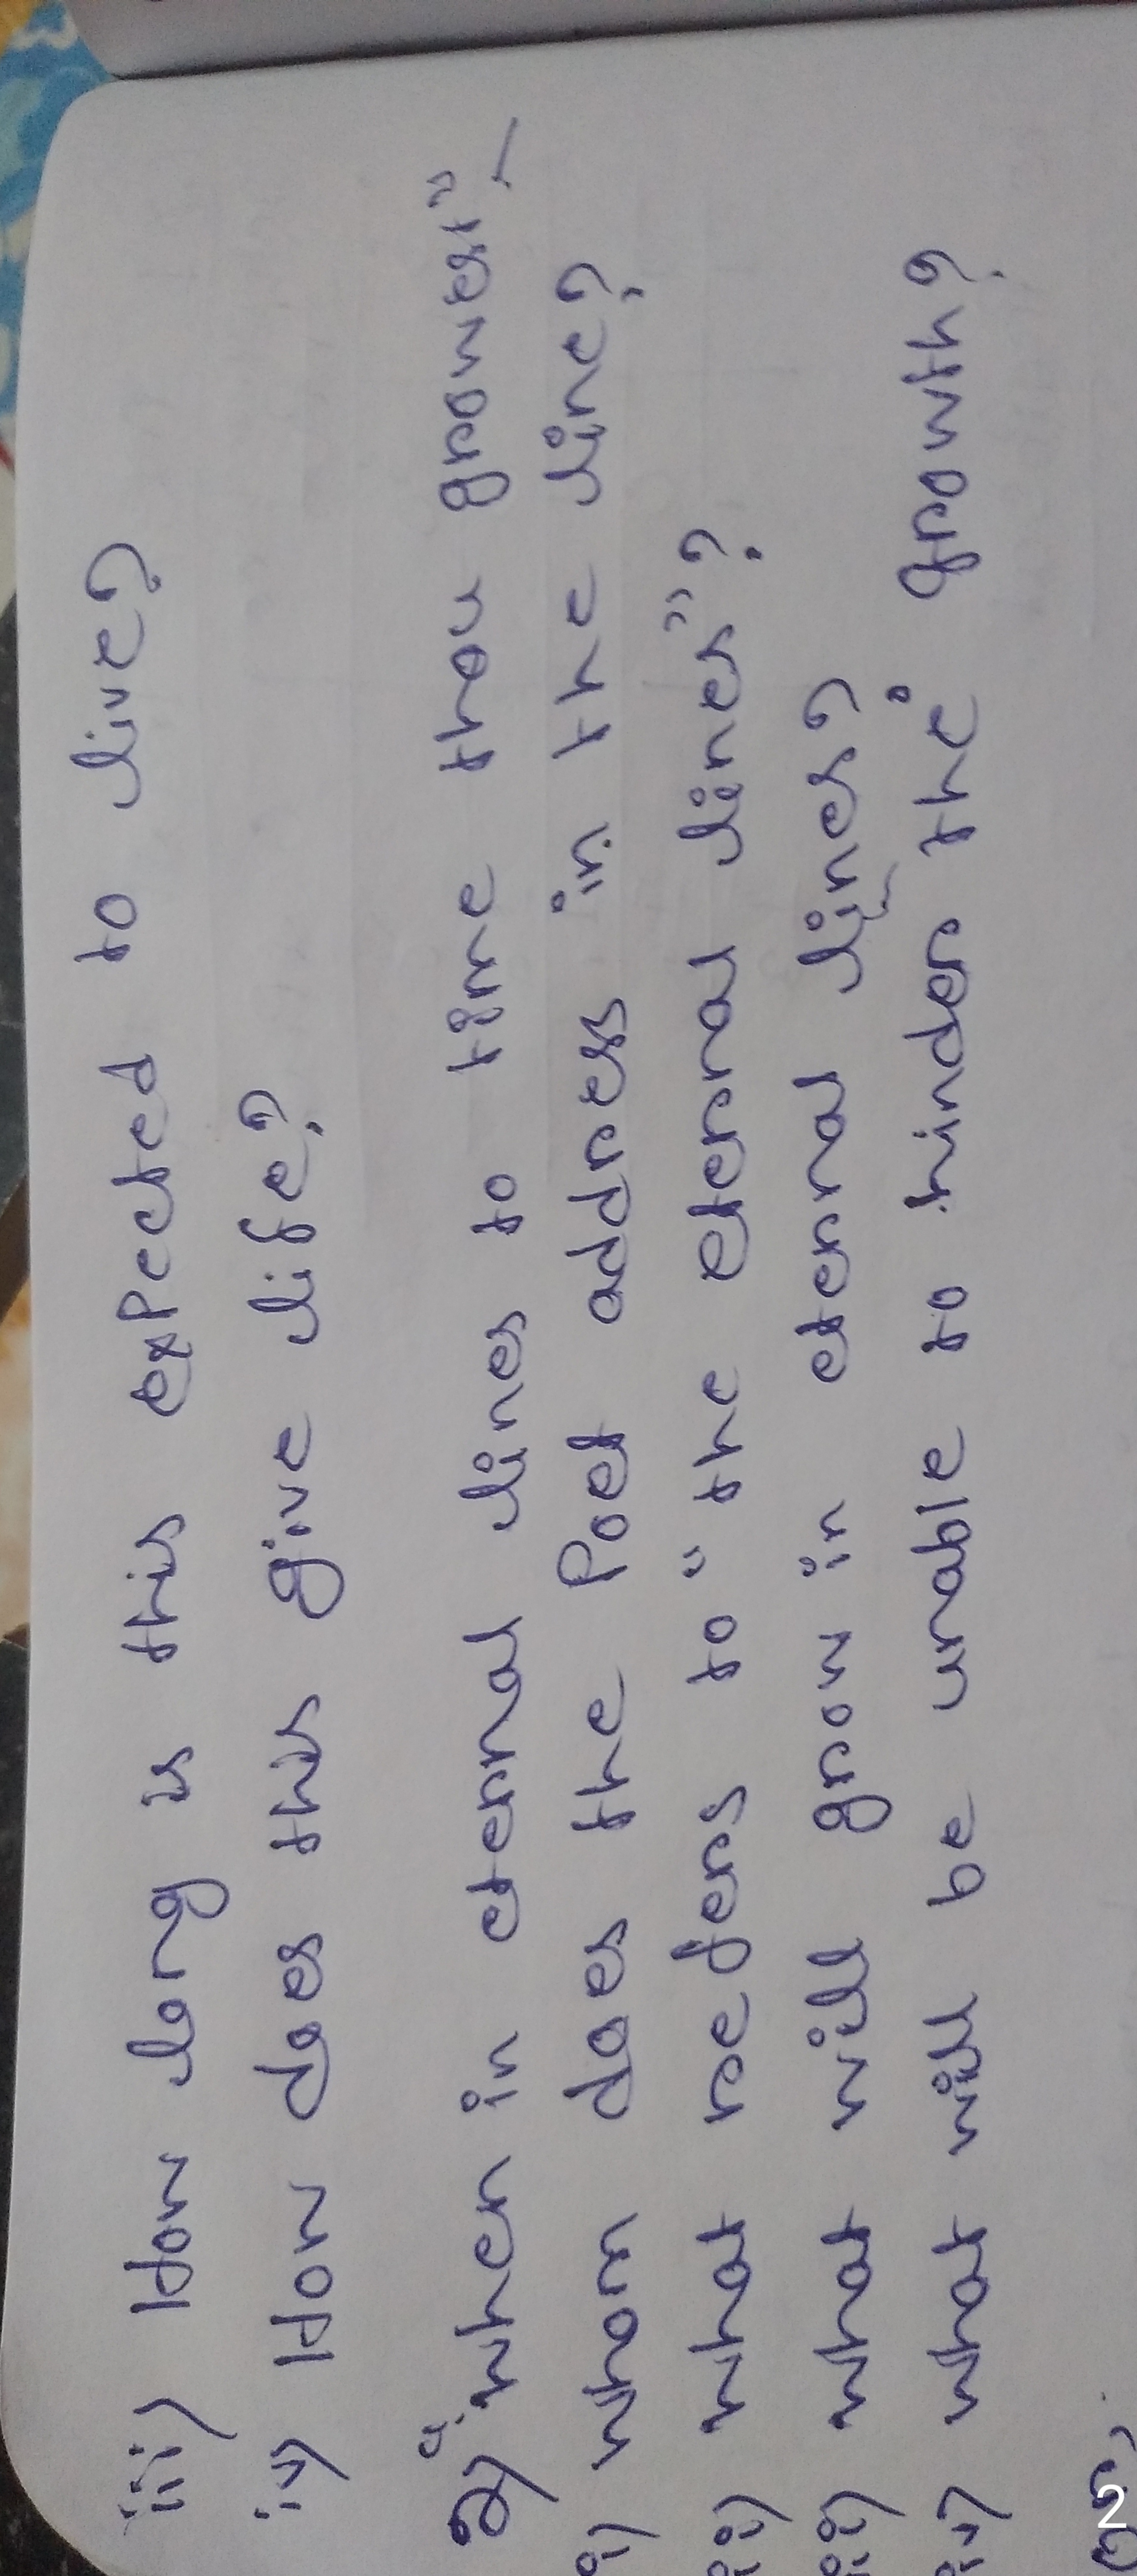 iii) How long is this expected to live?
iv) How does this give life?
2) "when in eternal lines to time thou growest" —
i) whom does the Poet address in the line?
ii) what refers to "the eternal lines"?
iii) what will grow in eternal lines?
iv) what will be unable to hinder the growth?
2